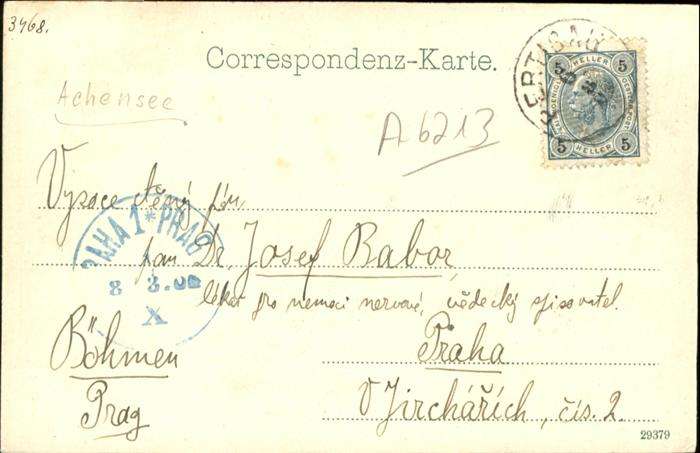 3468.
Correspondenz-Karte.
PERTISAU
5 5
HELLER
5 HELLER 5
Achensee
A6213
Vysoce ctěný pán,
pan Dr. Josef Babor,
lékař pro nemoci nervové, vědecký spisovatel
PRAHA 1 * PRAG
8 3.00
X
Böhmen
Praha
Prag
V Jirchářích, čís. 2.
29379